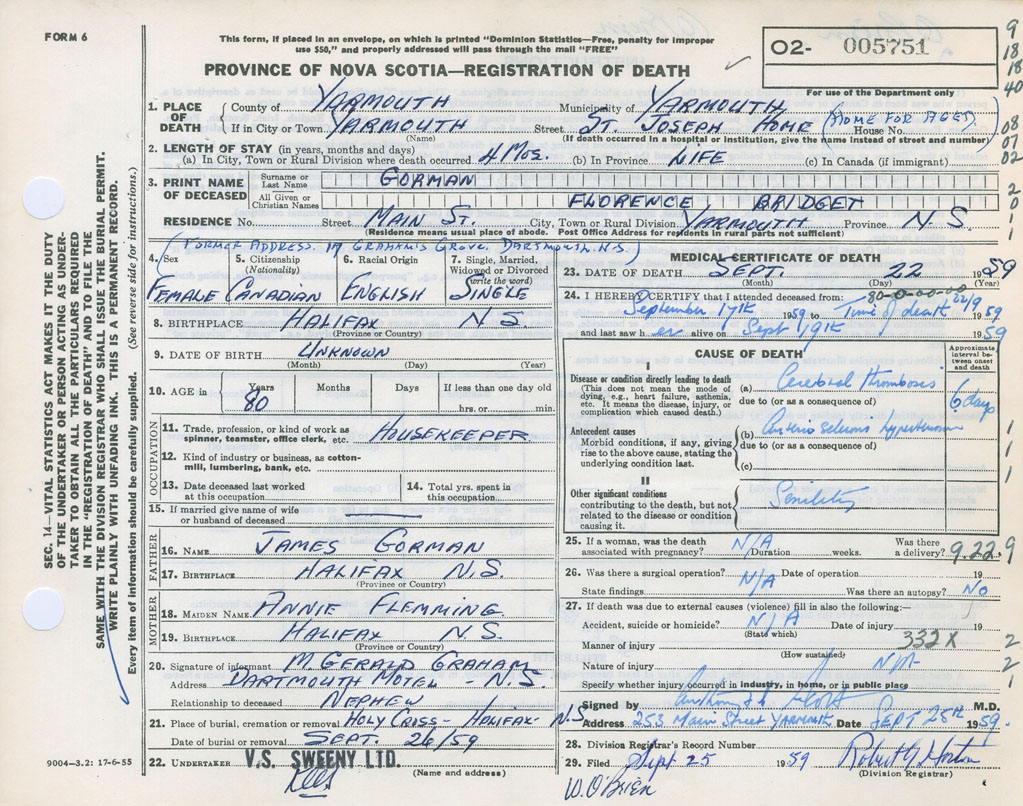 FORM 6
This form, if placed in an envelope, on which is printed "Dominion Statistics—Free, penalty for improper
use $50," and properly addressed will pass through the mail "FREE"
O2- 005751
For use of the Department only
PROVINCE OF NOVA SCOTIA—REGISTRATION OF DEATH
1. PLACE OF DEATH County of YARMOUTH Municipality of YARMOUTH (HOME FOR AGED)
If in City or Town YARMOUTH Street ST. JOSEPH HOME House No.
(Name) (If death occurred in a hospital or institution, give the name instead of street and number)
2. LENGTH OF STAY (in years, months and days)
(a) In City, Town or Rural Division where death occurred. 4 MOS. (b) In Province LIFE (c) In Canada (if immigrant)
3. PRINT NAME OF DECEASED Surname or Last Name GORMAN
All Given or Christian Names FLORENCE BRIDGET
RESIDENCE No. Street MAIN ST. City, Town or Rural Division YARMOUTH Province N S
(Residence means usual place of abode. Post Office Address for residents in rural parts not sufficient)
(FORMER ADDRESS. 19 GRAHAM'S GROVE. DARTMOUTH. N.S.)
4. Sex 5. Citizenship (Nationality) 6. Racial Origin 7. Single, Married, Widowed or Divorced (write the word)
FEMALE CANADIAN ENGLISH SINGLE
8. BIRTHPLACE HALIFAX N S.
(Province or Country)
9. DATE OF BIRTH UNKNOWN
(Month) (Day) (Year)
10. AGE in Years Months Days If less than one day old
80 hrs. or min.
OCCUPATION
11. Trade, profession, or kind of work as spinner, teamster, office clerk, etc. HOUSEKEEPER
12. Kind of industry or business, as cotton-mill, lumbering, bank, etc.
13. Date deceased last worked at this occupation 14. Total yrs. spent in this occupation
15. If married give name of wife or husband of deceased
FATHER
16. NAME JAMES GORMAN
17. BIRTHPLACE HALIFAX N.S.
(Province or Country)
MOTHER
18. MAIDEN NAME ANNIE FLEMMING
19. BIRTHPLACE HALIFAX N.S.
(Province or Country)
20. Signature of informant M. GERALD GRAHAM
Address DARTMOUTH MOTEL - N.S.
Relationship to deceased NEPHEW
21. Place of burial, cremation or removal HOLY CROSS - HALIFAX - N.S
Date of burial or removal SEPT. 26/59
22. UNDERTAKER V.S. SWEENY LTD.
(Name and address)
MEDICAL CERTIFICATE OF DEATH
23. DATE OF DEATH SEPT. 22 1959
(Month) (Day) (Year)
80-0-00-00
24. I HEREBY CERTIFY that I attended deceased from:
September 17th 1959 to Time of death 22/9 1959
and last saw h er alive on Sept 19th 1959
CAUSE OF DEATH
Approximate interval between onset and death
I
Disease or condition directly leading to death
(This does not mean the mode of dying, e.g., heart failure, asthenia, etc. It means the disease, injury, or complication which caused death.)
(a) Cerebral thrombosis 6 days
due to (or as a consequence of)
Antecedent causes
Morbid conditions, if any, giving rise to the above cause, stating the underlying condition last.
(b) Arterio sclerosis hypertension
due to (or as a consequence of)
(c)
II
Other significant conditions contributing to the death, but not related to the disease or condition causing it.
Senility
25. If a woman, was the death associated with pregnancy? N/A Duration weeks. Was there a delivery? 9.22.9
26. Was there a surgical operation? N/A Date of operation 19
State findings Was there an autopsy? NO
27. If death was due to external causes (violence) fill in also the following:—
Accident, suicide or homicide? N/A Date of injury 19
(State which)
Manner of injury 332X
(How sustained)
Nature of injury N/A
Specify whether injury occurred in industry, in home, or in public place
Signed by M.D.
Address 253 Main Street YARMOUTH Date SEPT 25th 1959.
28. Division Registrar's Record Number
29. Filed Sept 25 1959 Robert G Horton
(Division Registrar)
W. O'BRIEN
9004—3.2: 17-6-55
SEC. 14—VITAL STATISTICS ACT MAKES IT THE DUTY
OF THE UNDERTAKER OR PERSON ACTING AS UNDER-
TAKER TO OBTAIN ALL THE PARTICULARS REQUIRED
IN THE "REGISTRATION OF DEATH" AND TO FILE THE
SAME WITH THE DIVISION REGISTRAR WHO SHALL ISSUE THE BURIAL PERMIT.
WRITE PLAINLY WITH UNFADING INK. THIS IS A PERMANENT RECORD.
Every item of information should be carefully supplied. (See reverse side for instructions.)
9
18
18
40
08
07
02
2
0
1
1
1
1
1
2
2
1